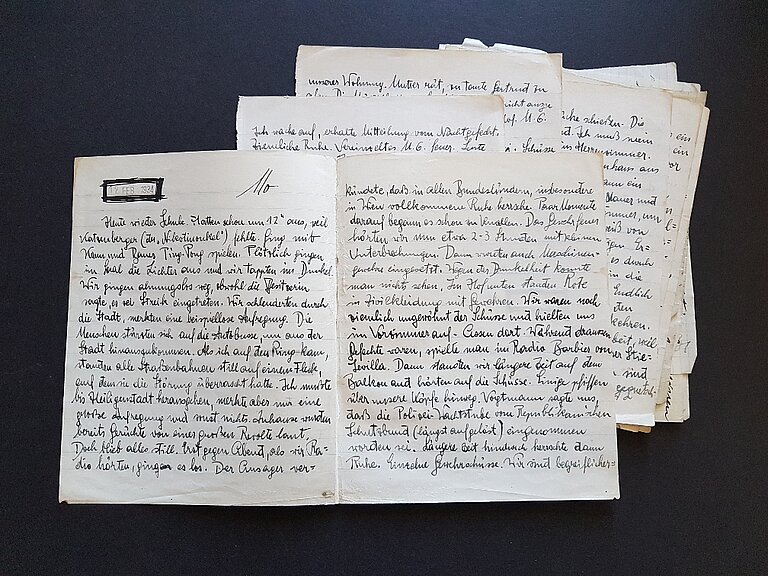 unserer Wohnung. Mutter rät, zu Tante Gertrud zu
Ich wache auf, erhalte Mitteilung vom Nachtgefecht.
Ziemliche Ruhe. Vereinzeltes M.G. feuer. Leute
12. FEB. 1934
Mo
Heute wieder Schule. Hatten schon um 12° aus, weil
Katzenberger (der "Nikotinonkel") fehlte. Ging mit
Kann und Ping-Pong spielen. Plötzlich gingen
im Saal die Lichter aus und wir tappten im Dunkel.
Wir gingen ahnungslos weg, obwohl die Besitzerin
sagte, es sei Streik eingetreten. Wir schlenderten durch
die Stadt, merkten eine beispiellose Aufregung. Die
Menschen stürzten sich auf die Autobusse, um aus der
Stadt hinauszukommen. Als ich auf den Ring kam,
standen alle Straßenbahnen still auf einem Fleck,
auf dem sie die Störung überrascht hatte. Ich mußte
bis Heiligenstadt heraus gehen, merkte aber nur eine
große Aufregung und sonst nichts. Zuhause wurden
bereits Gerüchte von einer großen Revolte laut.
Doch blieb alles still. Erst gegen Abend, als wir Ra-
dio hörten, ging es los. Der Ansager ver-
kündete, daß in allen Bundesländern, insbesondere
in Wien vollkommene Ruhe herrsche. Paar Momente
darauf begann es schon zu knallen. Das Geschützfeuer
hörten wir nun etwa 2-3 Stunden mit kleinen
Unterbrechungen. Dann wurden auch Maschinen-
gewehre eingesetzt. Wegen der Dunkelheit konnte
man nichts sehen. Im Hof unten standen Rote
in Zivilkleidung mit Gewehren. Wir waren noch
ziemlich ungewöhnt der Schüsse und hielten uns
im Vorzimmer auf. Assen dort. Während draussen
Gefechte waren, spielte man im Radio Barbier von
Sevilla. Dann standen wir längere Zeit auf dem
Balkon und hörten auf die Schüsse. Einige pfiffen
über unsere Köpfe hinweg. Vogtmann sagte uns,
daß die Polizei-Wachstube vom Republikanischen
Schutzbund (längst aufgelöst) eingenommen
worden sei. Längere Zeit hindurch herrschte dann
Ruhe. Einzelne Gewehrschüsse. Wir sind begreiflicher=
schießen. Die
Ich muß mein
Herrenzimmer.
aus
ein
Mauer und
von
durch
die
Endlich
den
weil
sind